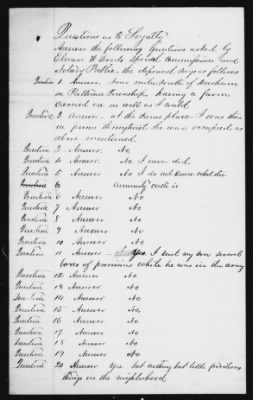 Questions as to Loyalty
Answer the following Questions asked by
Elwood W. Woods Special Commissioner and
Notary Public. The deponent says as follows
Question 1 Answer. Four miles South of
in Township. having a farm
carried on as well as I could
Question 2 Answer — at the same place. I was there
in person throughout the war occupied as
above mentioned.
Question 3 Answer. No
Question 4 Answer. No, I never did.
Question 5 Answer No I do not know what the
amnesty oath is
Question 6 Answer No
Question 7 Answer No
Question 8 Answer No
Question 9 Answer No
Question 10 Answer No
Question 11 Answer — Yes. I sent my son several
boxes of provisions while he was in the army
Question 12 Answer No
Question 13 Answer No
Question 14 Answer No
Question 15 Answer No
Question 16 Answer No
Question 17 Answer No
Question 18 Answer No
Question 19 Answer No
Question 20 Answer Yes but nothing but little provisions
things in the neighborhood